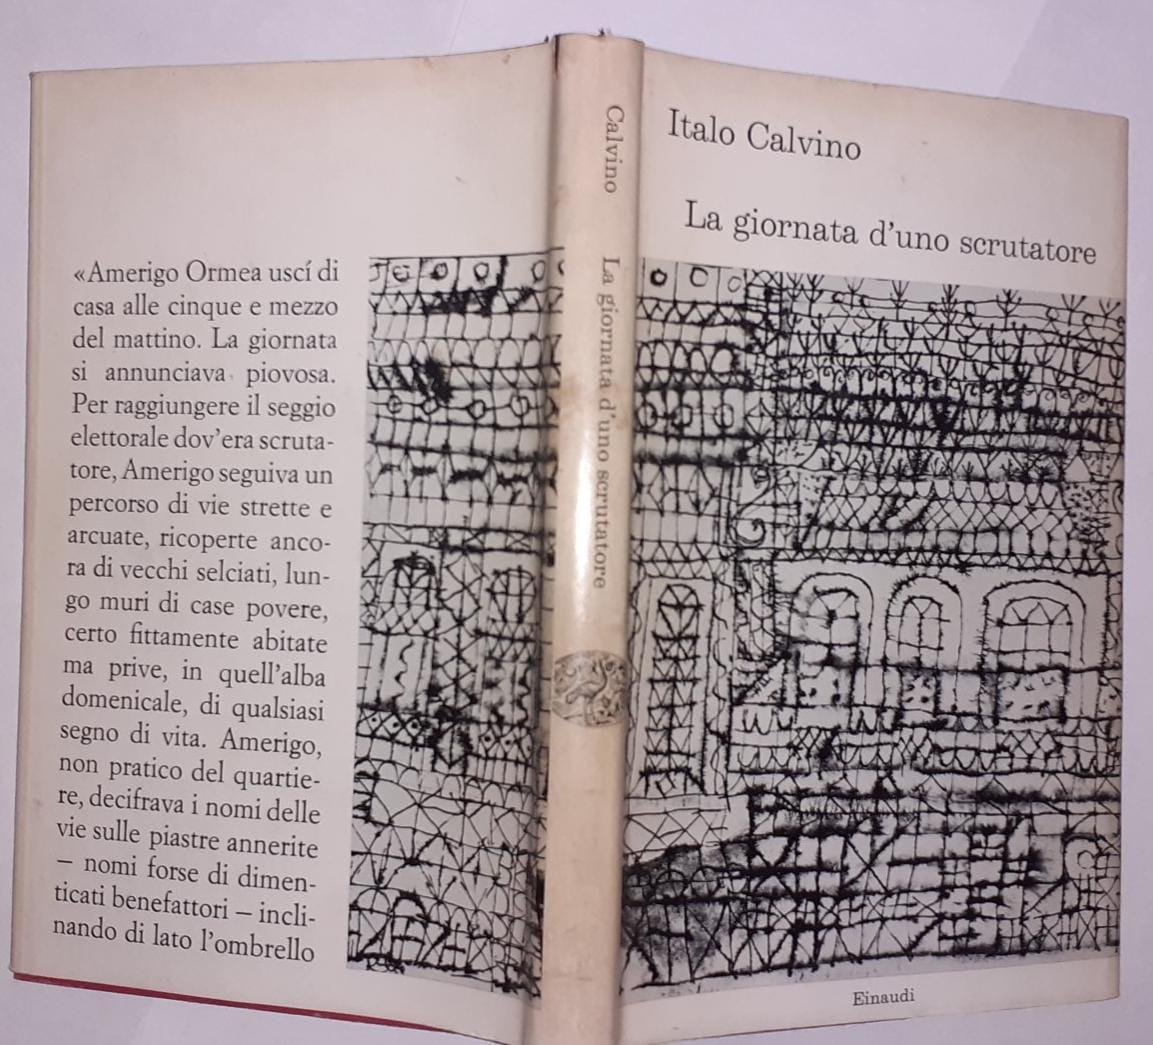 «Amerigo Ormea uscí di
casa alle cinque e mezzo
del mattino. La giornata
si annunciava piovosa.
Per raggiungere il seggio
elettorale dov'era scruta-
tore, Amerigo seguiva un
percorso di vie strette e
arcuate, ricoperte anco-
ra di vecchi selciati, lun-
go muri di case povere,
certo fittamente abitate
ma prive, in quell'alba
domenicale, di qualsiasi
segno di vita. Amerigo,
non pratico del quartie-
re, decifrava i nomi delle
vie sulle piastre annerite
– nomi forse di dimen-
ticati benefattori – incli-
nando di lato l'ombrello
Calvino
La giornata d'uno scrutatore
Italo Calvino
La giornata d'uno scrutatore
Einaudi